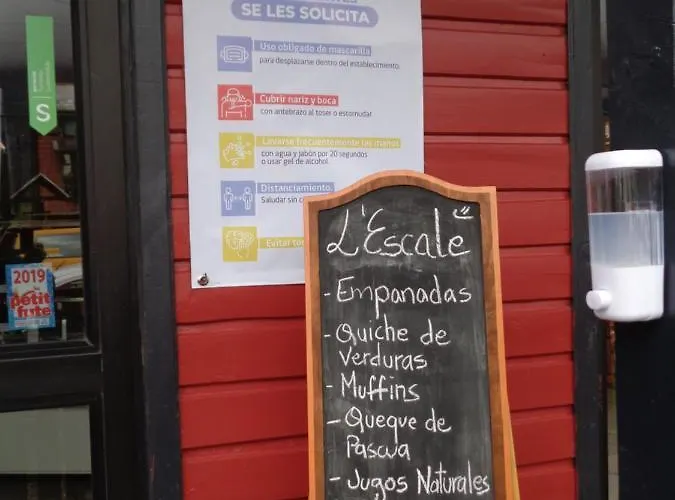 SE LES SOLICITA
Uso obligado de mascarilla
para desplazarse dentro del establecimiento.
Cubrir nariz y boca
con antebrazo al toser o estornudar
Lavarse frecuentemente las manos
con agua y jabón por 20 segundos
o usar gel de alcohol.
Distanciamiento.
Saludar sin
Evitar
S
2019
petit
futé
L'Escale
- Empanadas
- Quiche de
Verduras
- Muffins
- Queque de
Pascua
- Jugos Naturales